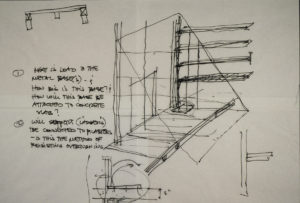 ① WHAT IS LOAD @ THE
METAL BASE(S) - ?
HOW BIG IS THIS BASE?
HOW WILL THIS BASE BE
ATTACHED TO CONCRETE
SLAB?
② WILL (LOADING)
BE CONNECTED TO
- IS THIS THE METHOD OF
RESISTING OVERTURNING